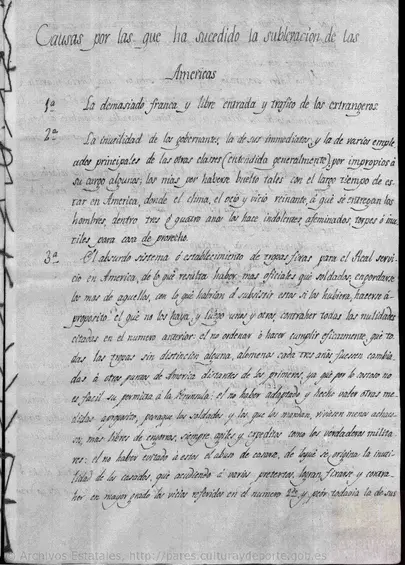 Causas por las que ha sucedido la sublevacion de las
Americas
1ª La demasiado franca y libre entrada y trafico de los extrangeros.
2ª La inutilidad de los gobernantes, la de sus inmediatos, y la de varios emple
ados principales de las otras clases (entendida generalmente) por impropios á
su cargo algunos; los mas por haberse buelto tales con el largo tiempo de es
tar en America, donde el clima, el ocio y vicio reinante, á que se entregan los
hombres, dentro tres ó quatro años los hace indolentes, afeminados, torpes é inu
tiles para cosa de provecho.
3ª El absurdo sistema ó establecimiento de tropas fixas para el Real servi
cio en America, de lo que resulta haber mas oficiales que soldados,
los mas de aquellos, con lo que habrian d subsistir estos si los hubiera, hacerse á
proposito el que no los haya, y luego unos y otros, contraher todas las nulidades
citadas en el numero anterior: el no ordenar ó hacer cumplir eficazmente, que to
das las tropas sin distincion alguna, alomenos cada tres años fuesen cambia
das á otros puntos de America distantes de los primeros, ya que por lo costoso no
es facil su permuta á la Peninsula: el no haber adaptado y hecho valer otras me
didas aproposito, paraque los soldados y los que los mandan, viviesen menos
mas libres de, siempre agiles y expeditos como los verdaderos milita
res: el no haber evitado á estos el abuso de casarse, de loque se origina la inuti
lidad de los casados, que acudiendo á varios pretextos, logran fixarse y contra
her en mayor grado los vicios referidos en el numero 2º y peor todavia la de sus
© Archivos Estatales, http://pares.culturaydeporte.gob.es